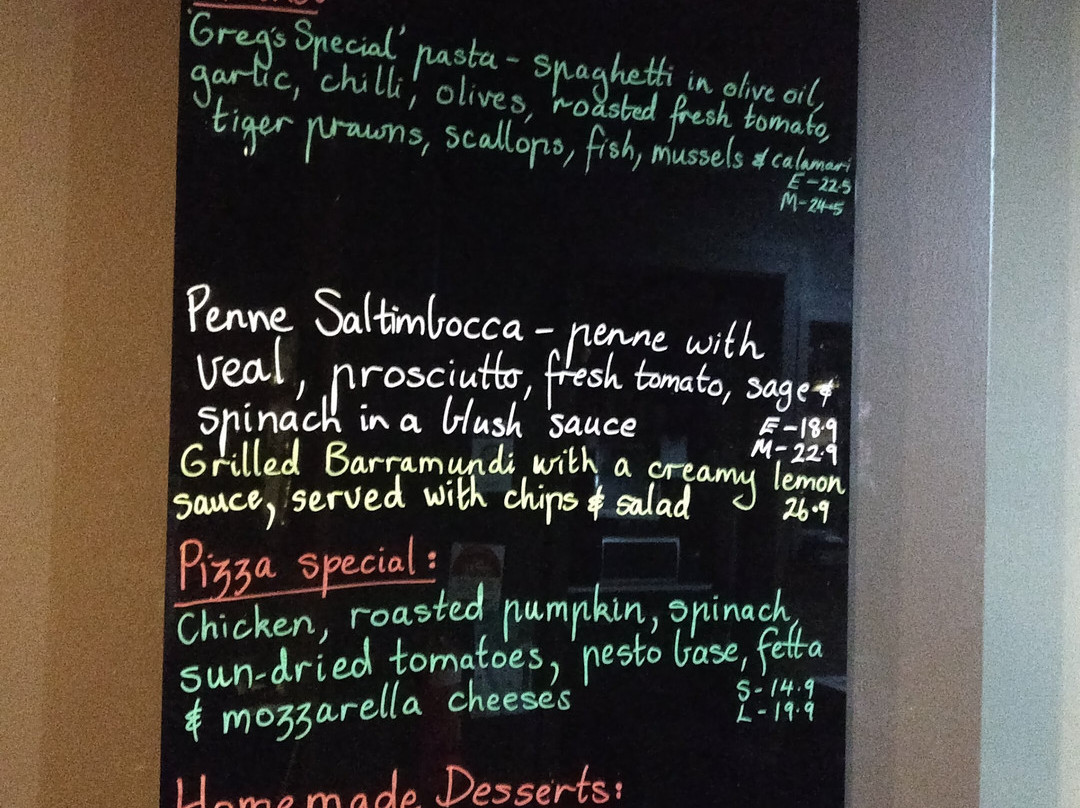 'Greg's Special' pasta - spaghetti in olive oil,
garlic, chilli, olives, roasted fresh tomato,
tiger prawns, scallops, fish, mussels & calamari
E - 22.5
M - 24.5
Penne Saltimbocca - penne with
veal, prosciutto, fresh tomato, sage &
spinach in a blush sauce
E - 18.9
M - 22.9
Grilled Barramundi with a creamy lemon
sauce, served with chips & salad 26.9
Pizza special:
Chicken, roasted pumpkin, spinach,
sun-dried tomatoes, pesto base, fetta
& mozzarella cheeses
S - 14.9
L - 19.9
Homemade Desserts: